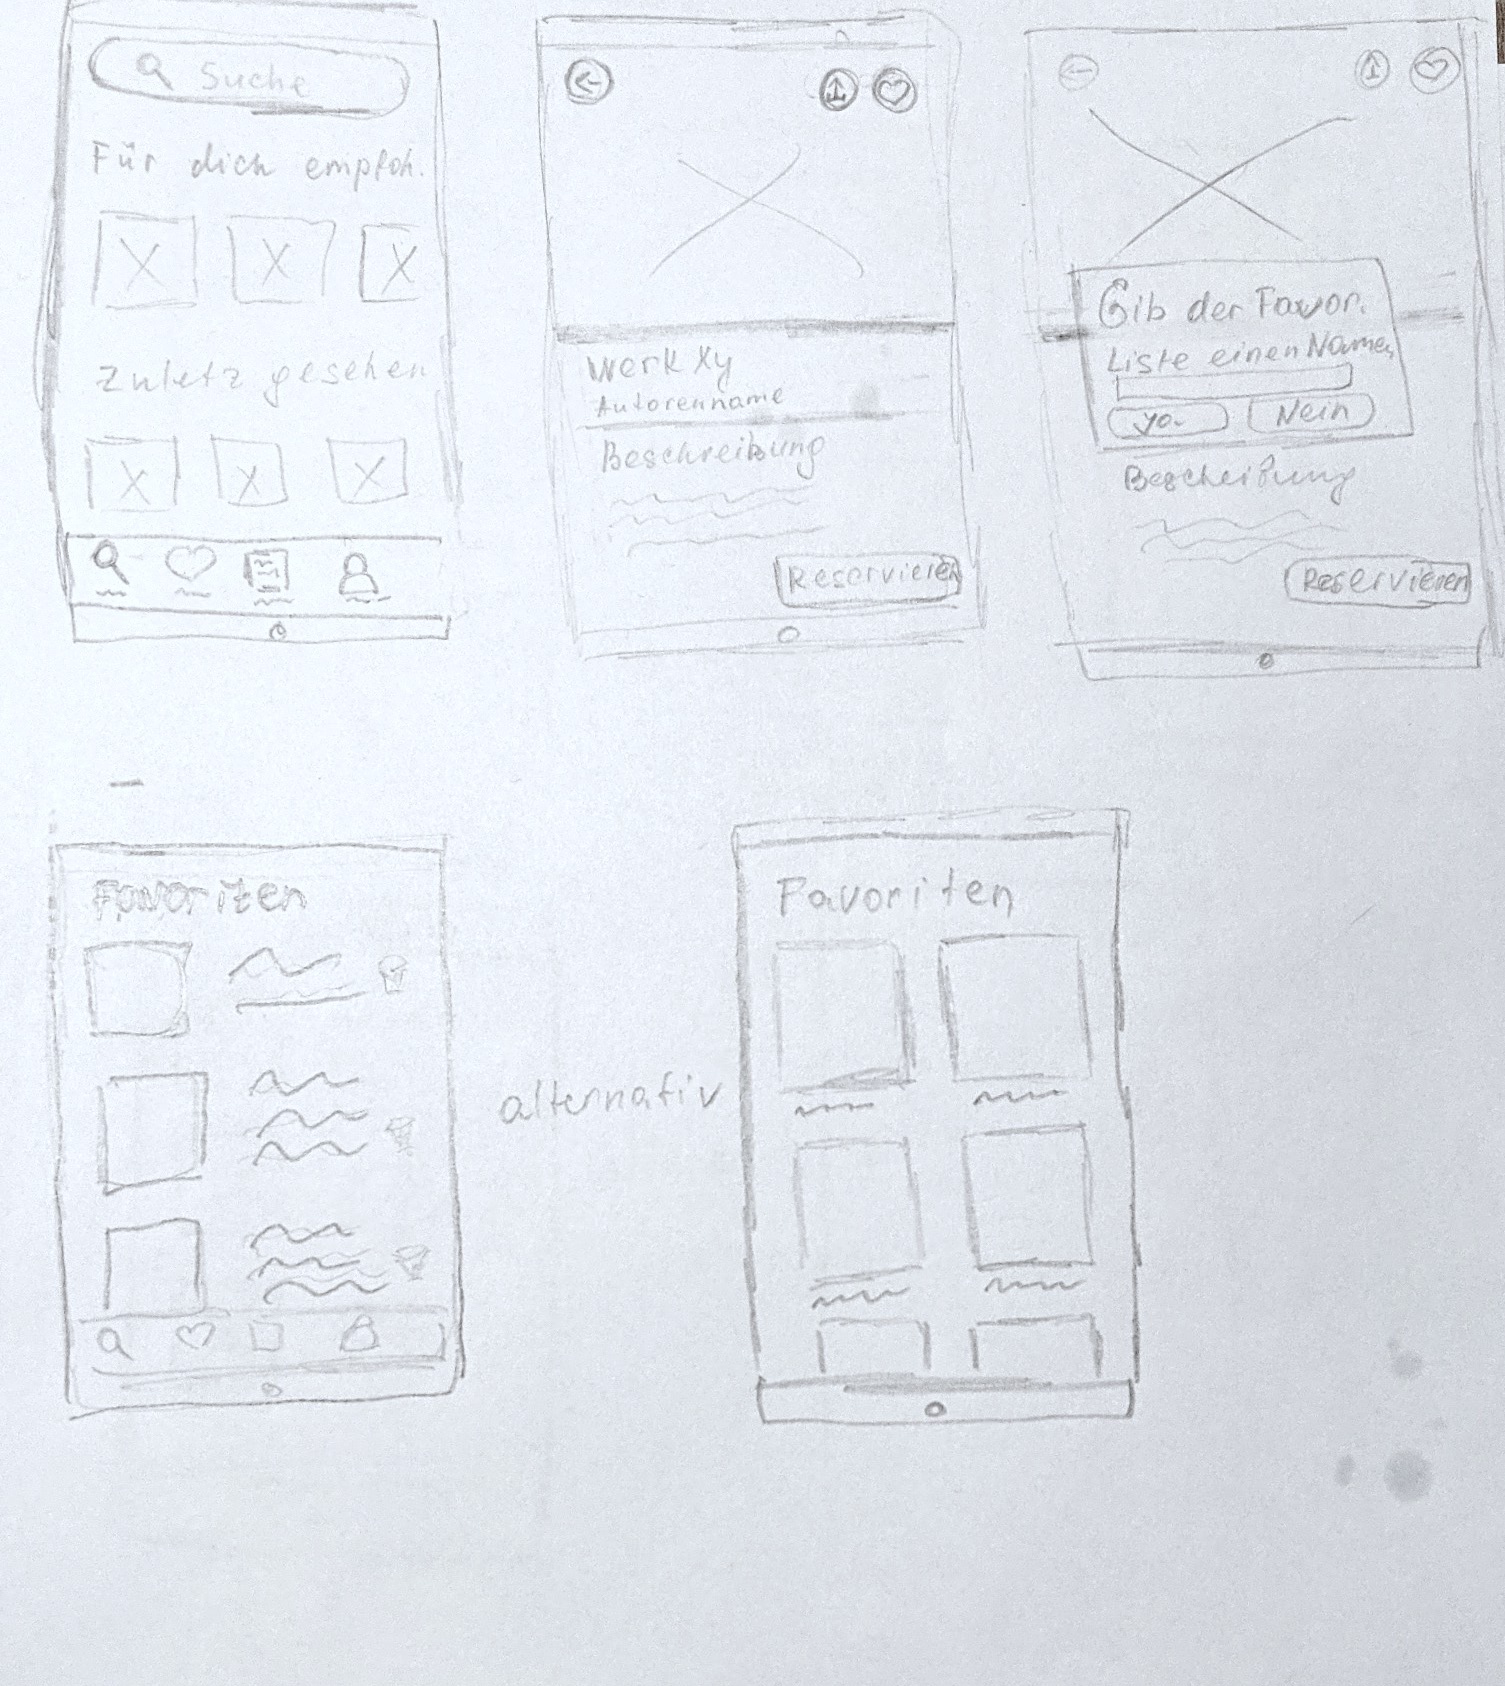 Suche
Für dich empfoh.
Zuletz gesehen
Werk xy
Autorenname
Beschreibung
Reservieren
Gib der Favor.
Liste einen Namen
ja
Nein
Bescheibung
Reservieren
Favoriten
alternativ
Favoriten